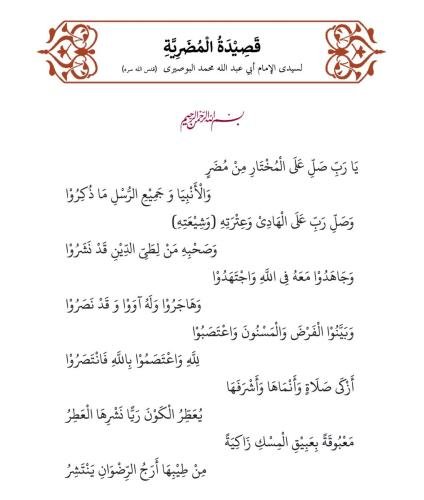 قَصِيْدَةُ الْمُضَرِيَّةِ
لسيدى الإمام أبي عبد الله محمد البوصيرى (قدس الله سره)
بسم الله الرحمن الرحيم
يَا رَبِّ صَلِّ عَلَى الْمُخْتَارِ مِنْ مُضَرٍ
وَالْأَنْبِيَا وَ جَمِيْعِ الرُّسْلِ مَا ذُكِرُوْا
وَصَلِّ رَبِّ عَلَى الْهَادِىْ وَعِتْرَتِهِ (وَشِيْعَتِهِ)
وَصَحْبِهِ مَنْ لِطَيِّ الدِّيْنِ قَدْ نَشَرُوْا
وَجَاهَدُوْا مَعَهُ فِى اللَّهِ وَاجْتَهَدُوْا
وَهَاجَرُوْا وَلَهُ آوَوْا وَ قَدْ نَصَرُوْا
وَبَيَّنُوْا الْفَرْضَ وَالْمَسْنُوْنَ وَاعْتَصَبُوْا
لِلَّهِ وَاعْتَصَمُوْا بِاللَّهِ فَانْتَصَرُوْا
أَزْكَى صَلَاةٍ وَأَنْمَاهَا وَأَشْرَفَهَا
يُعَطِّرُ الْكَوْنَ رَيًّا نَشْرِهَا الْعَطِرُ
مَعْبُوْقَةً بِعَبِيْقِ الْمِسْكِ زَاكِيَةً
مِنْ طِيْبِهَا أَرَجُ الرِّضْوَانِ يَنْتَشِرُ